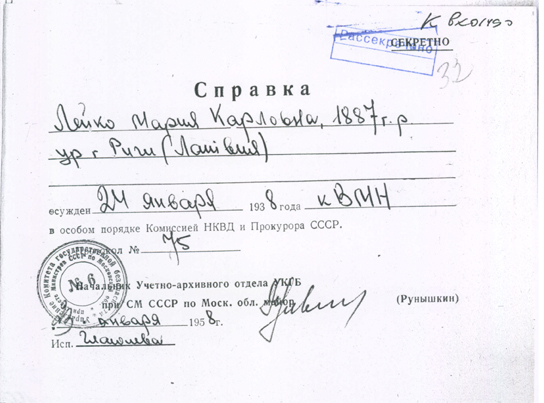 к вход
Рассекречено
СЕКРЕТНО
32
Справка
Лейко Мария Карловна, 1887 г. р.
ур г Риги (Латвия)
осужден 24 января 1938 года к ВМН
в особом порядке Комиссией НКВД и Прокурора СССР.
кол № 75
№ 6
Начальник Учетно-архивного отдела УКГБ
при СМ СССР по Моск. обл. майор
(Рунышкин)
января 1958 г.
Исп.